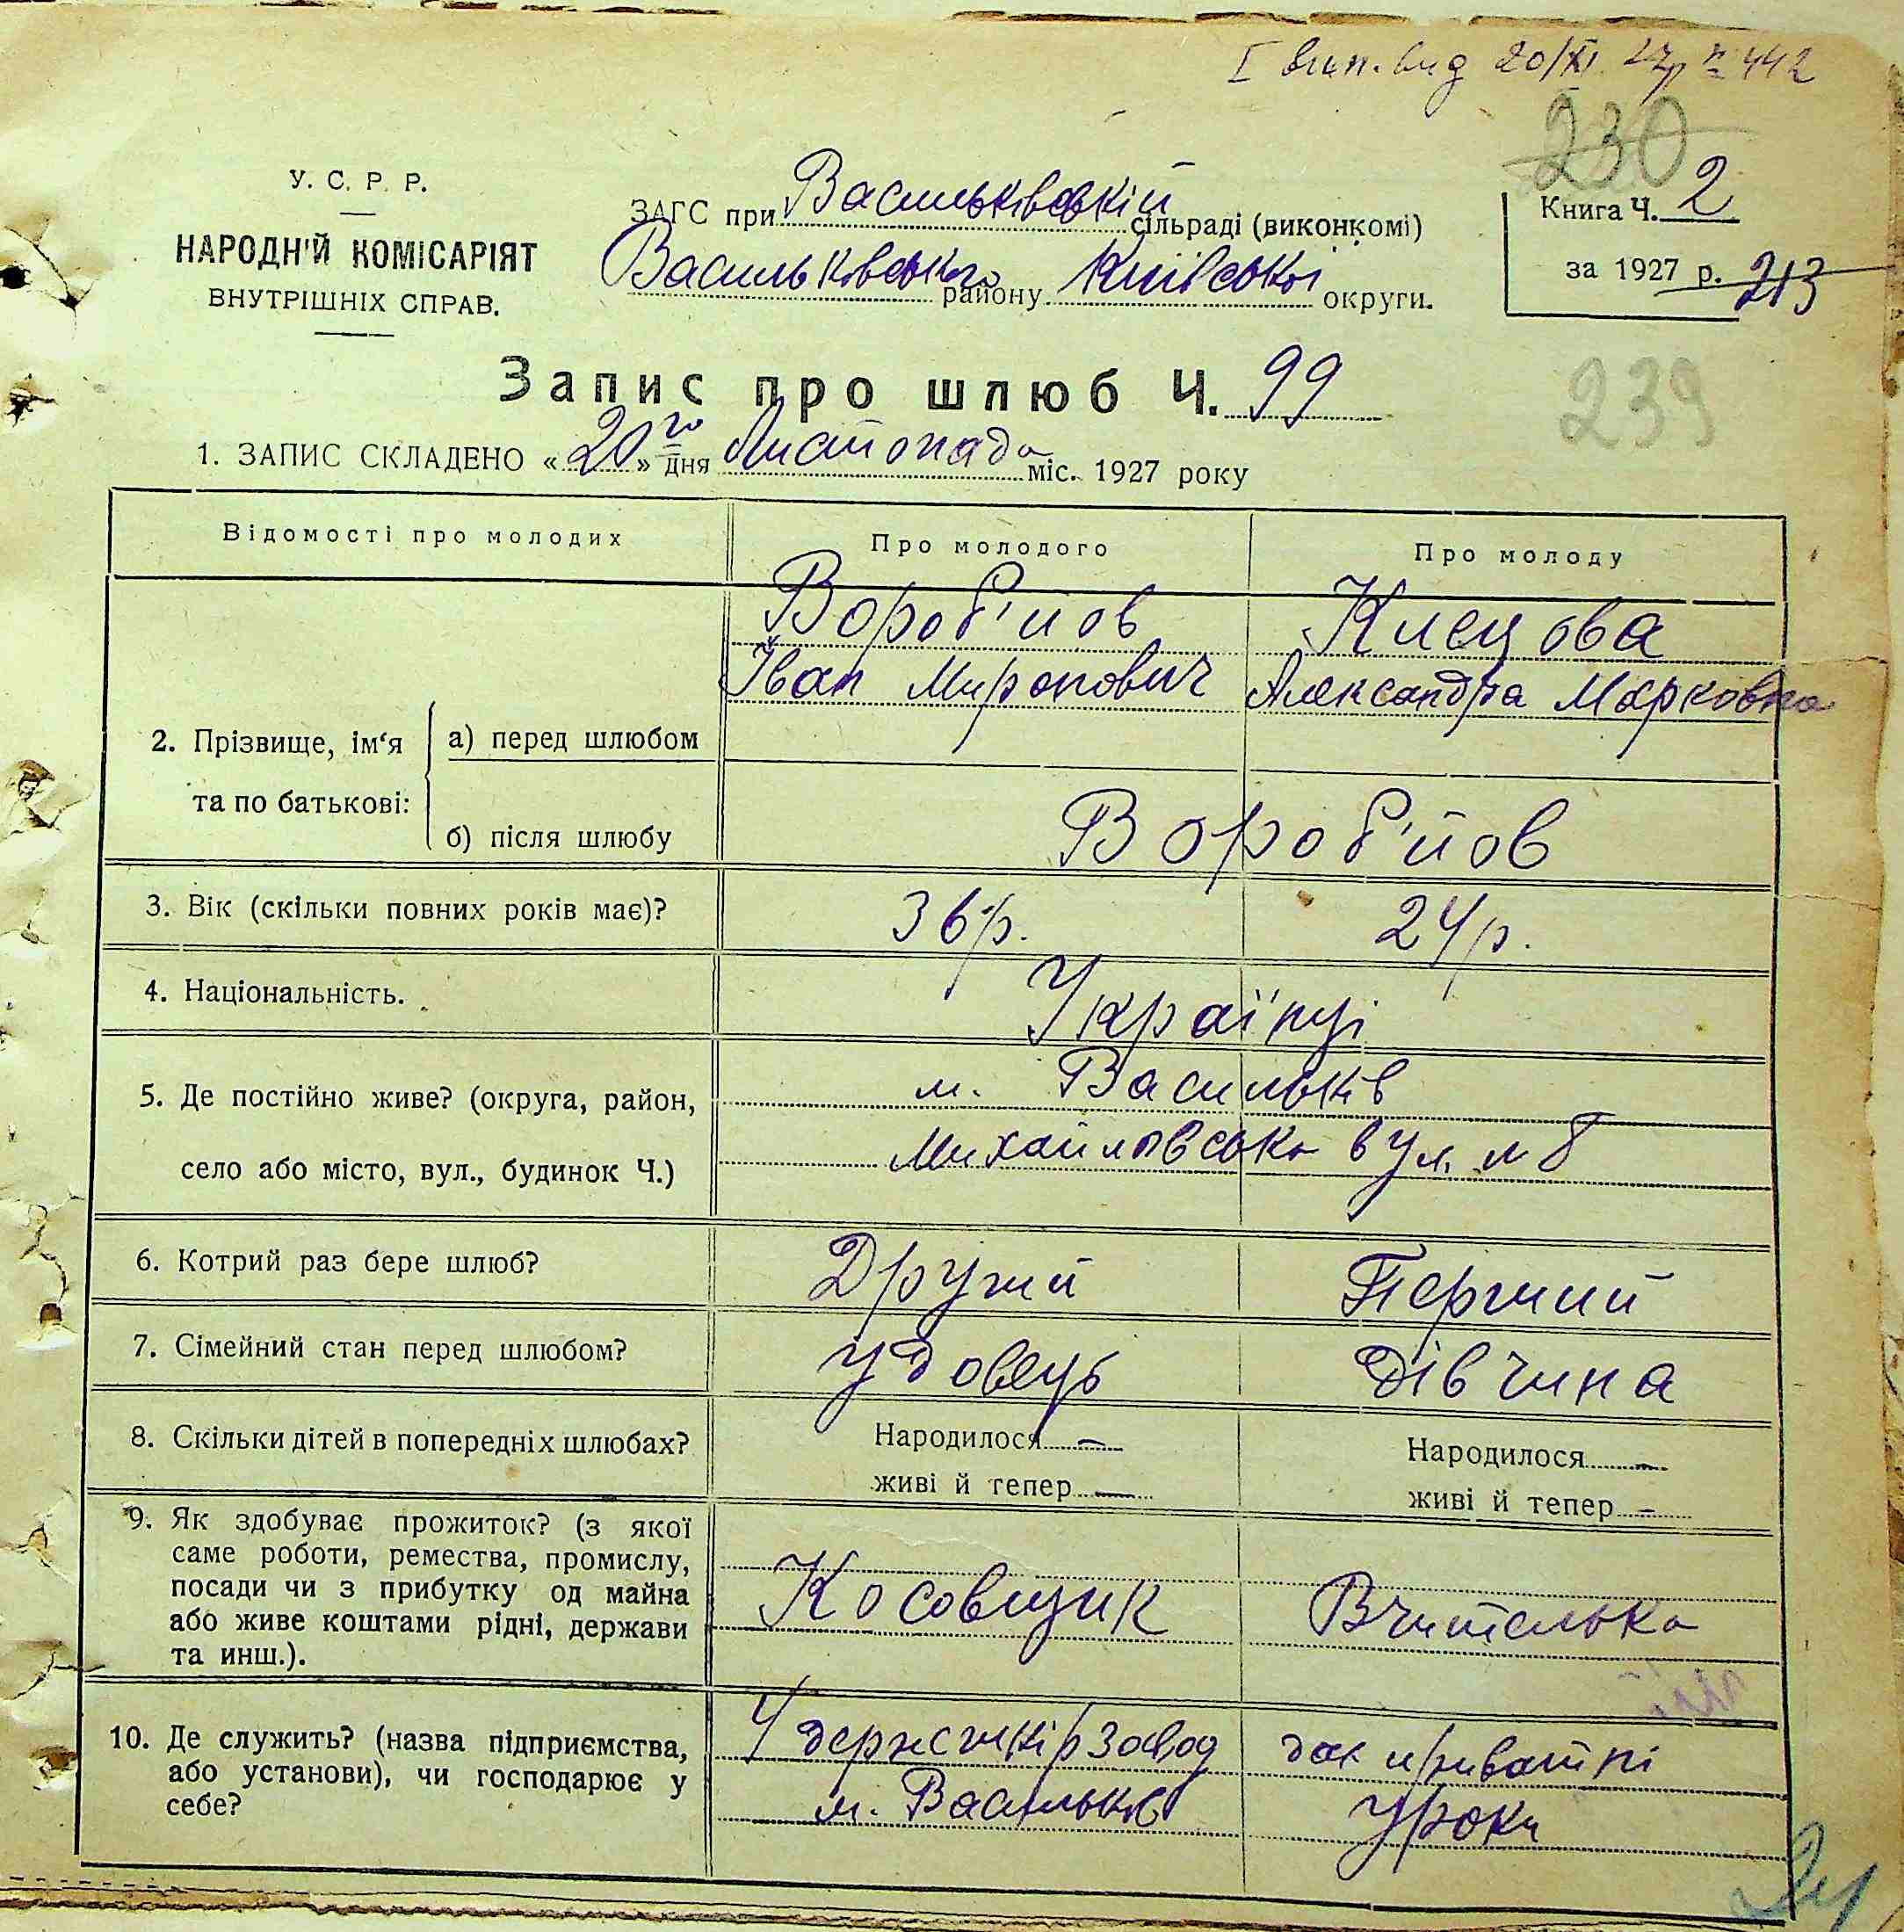 І вип. вид 20/XI 27р № 442
230
У. С. Р. Р.
НАРОДНІЙ КОМІСАРІЯТ
ВНУТРІШНІХ СПРАВ.
ЗАГС при Васильківській сільраді (виконкомі)
Васильківського району Київської округи.
Книга Ч. 2
за 1927 р. 213
239
Запис про шлюб Ч. 99
1. ЗАПИС СКЛАДЕНО «20го» дня Листопада міс. 1927 року
Відомості про молодих
Про молодого
Про молоду
2. Прізвище, ім‘я та по батькові:
а) перед шлюбом
Вороб'йов
Іван Миронович
Клецова
Александра Марковна
б) після шлюбу
Вороб'йов
3. Вік (скільки повних років має)?
36 р.
24 р.
4. Національність.
Українці
5. Де постійно живе? (округа, район,
село або місто, вул., будинок Ч.)
м. Васильків
Михайловська вул. № 8
6. Котрий раз бере шлюб?
Другий
Перший
7. Сімейний стан перед шлюбом?
удовець
дівчина
8. Скільки дітей в попередніх шлюбах?
Народилося —
живі й тепер —
Народилося —
живі й тепер —
9. Як здобуває прожиток? (з якої
саме роботи, ремества, промислу,
посади чи з прибутку од майна
або живе коштами рідні, держави
та инш.).
Косовщик
Вчителька
10. Де служить? (назва підприємства,
або установи), чи господарює у
себе?
У держшкірзавод
м. Васильків
дає приватні
уроки